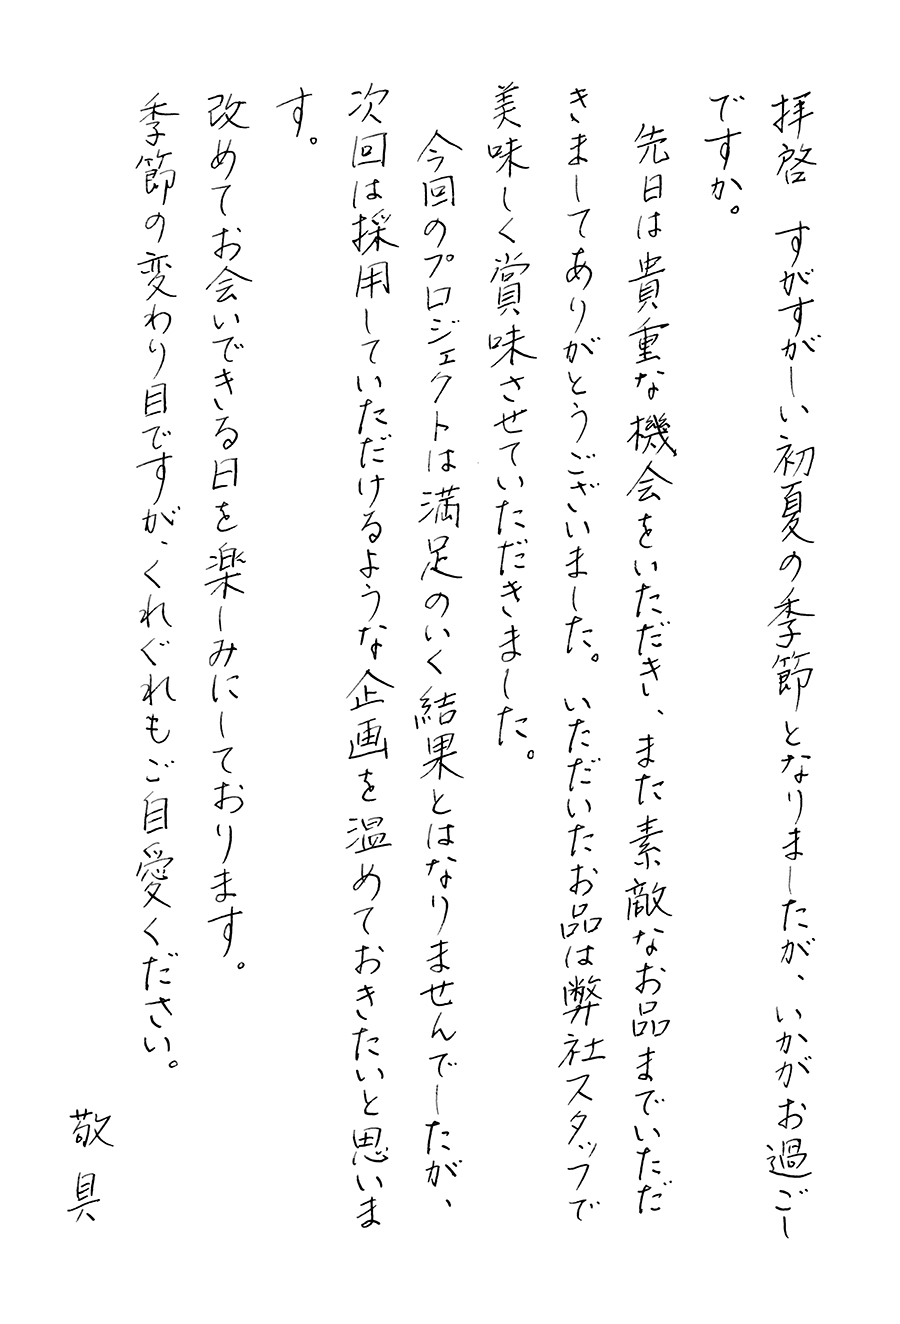 拝啓　すがすがしい初夏の季節となりましたが、いかがお過ごし
ですか。
　先日は貴重な機会をいただき、また素敵なお品までいただ
きましてありがとうございました。いただいたお品は弊社スタッフで
美味しく賞味させていただきました。
　今回のプロジェクトは満足のいく結果とはなりませんでしたが、
次回は採用していただけるような企画を温めておきたいと思いま
す。
改めてお会いできる日を楽しみにしております。
季節の変わり目ですが、くれぐれもご自愛ください。
敬具